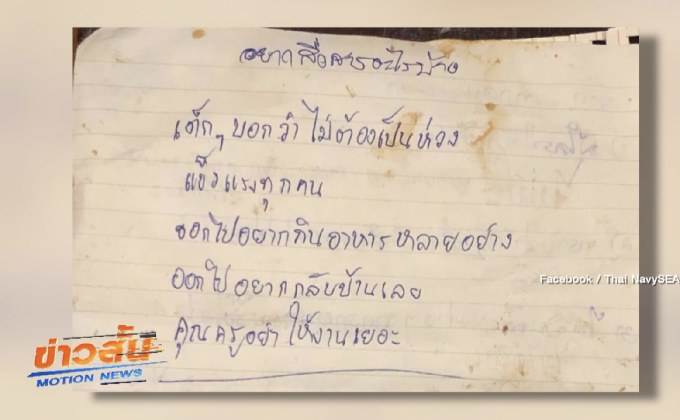 อยากสื่อสารอะไรบ้าง
เด็กๆ บอกว่า ไม่ต้องเป็นห่วง
แข็งแรงทุกคน
ออกไปอยากกินอาหารหลายอย่าง
ออกไปอยากกลับบ้านเลย
คุณครูอย่าให้งานเยอะ
Facebook / Thai NavySEA
ข่าวสั้น
MOTION NEWS